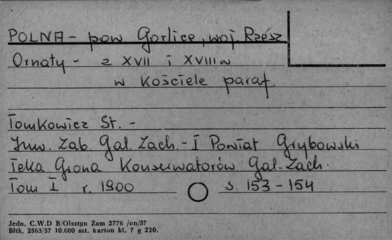 POLNA - pow Gorlice, woj. Rzesz
Ornaty - z XVII i XVIII w
w Kościele paraf.
Tomkowicz St. -
Inw. Zab. Gal. Zach. - I Powiat Grybowski
Teka Grona Konserwatorów Gal. Zach.
Tom I r. 1900 s. 153 - 154
Jedn. C.W.D B/Olsztyn Zam 2776 /on/57
Błtk. 2563/57 10.000 szt. karton kl. 7 g 220.